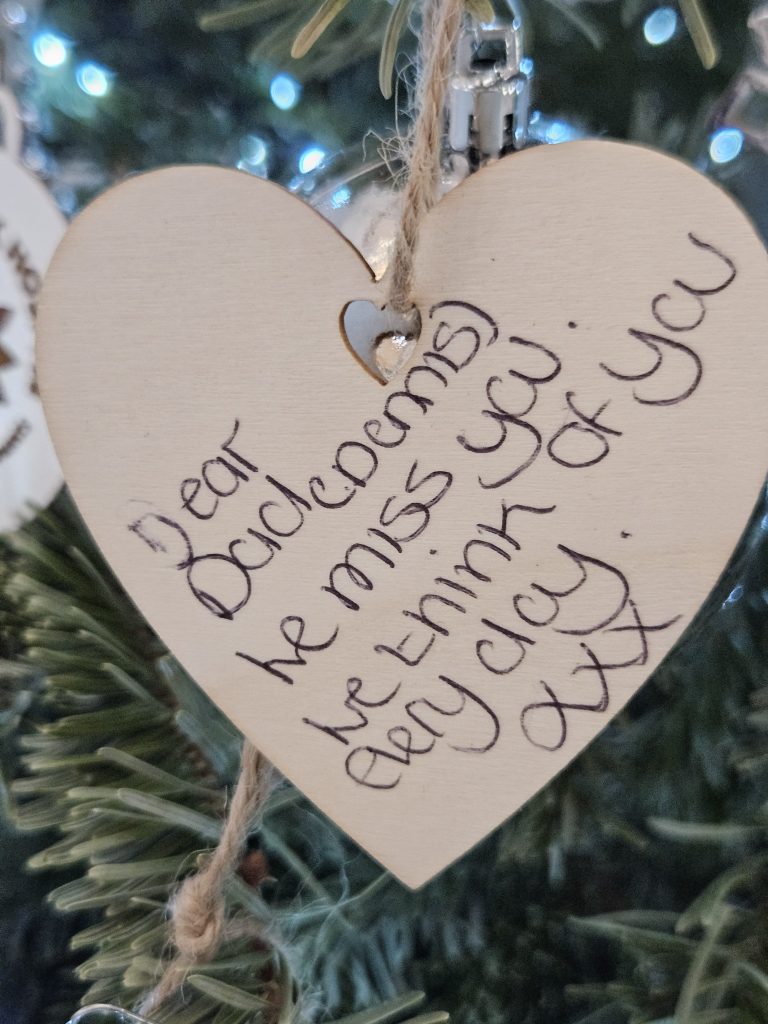 Dear
Dad (Dennis)
We miss you.
We think of you
every day.
xxxx